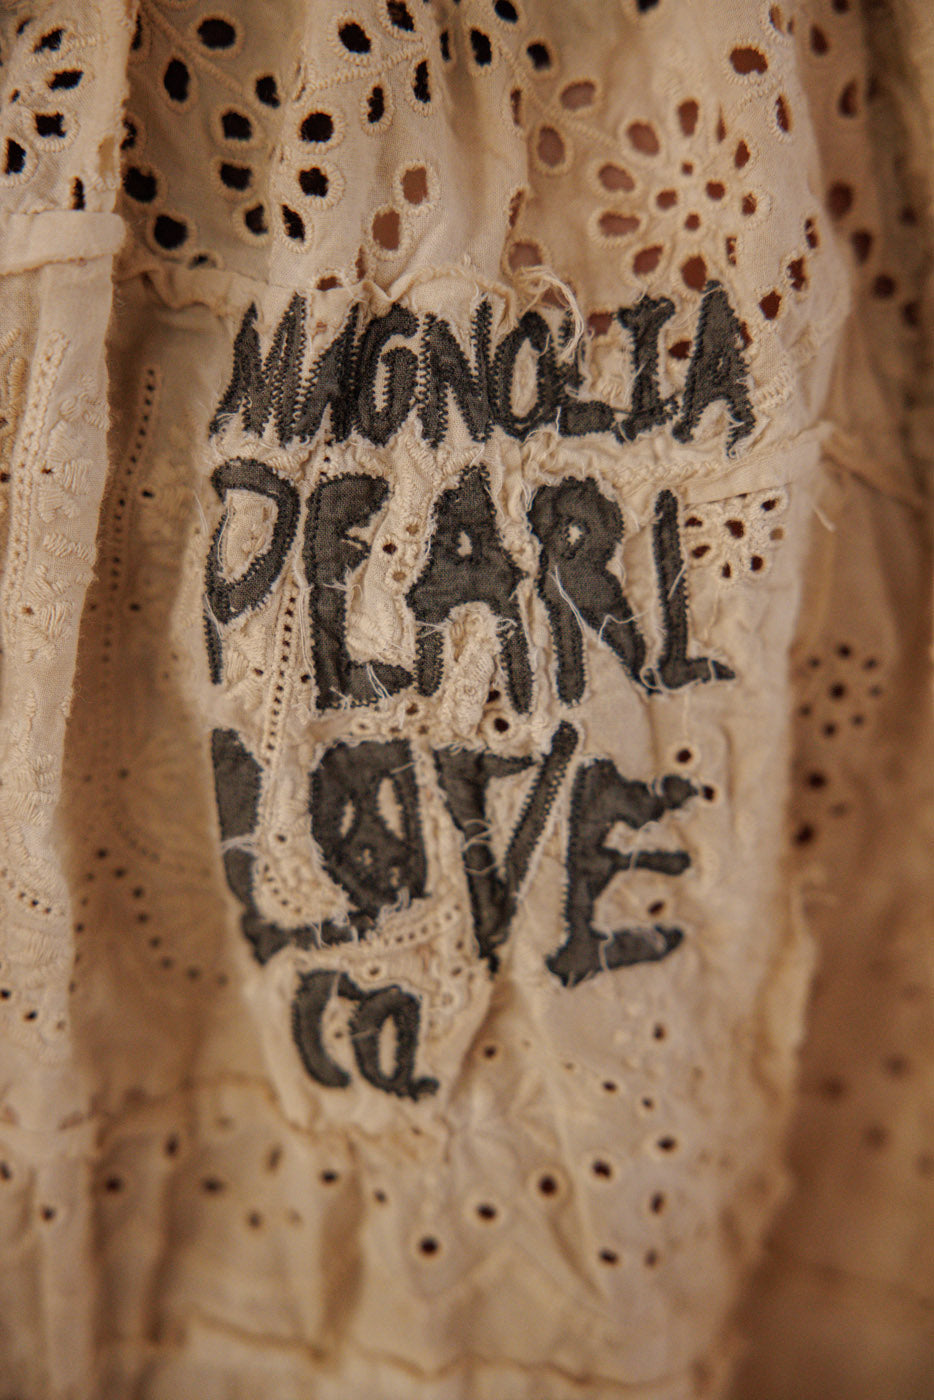 MAGNOLIA
PEARL
LOVE
Co.